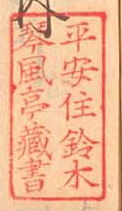 平安住鈴木
琴風亭藏書